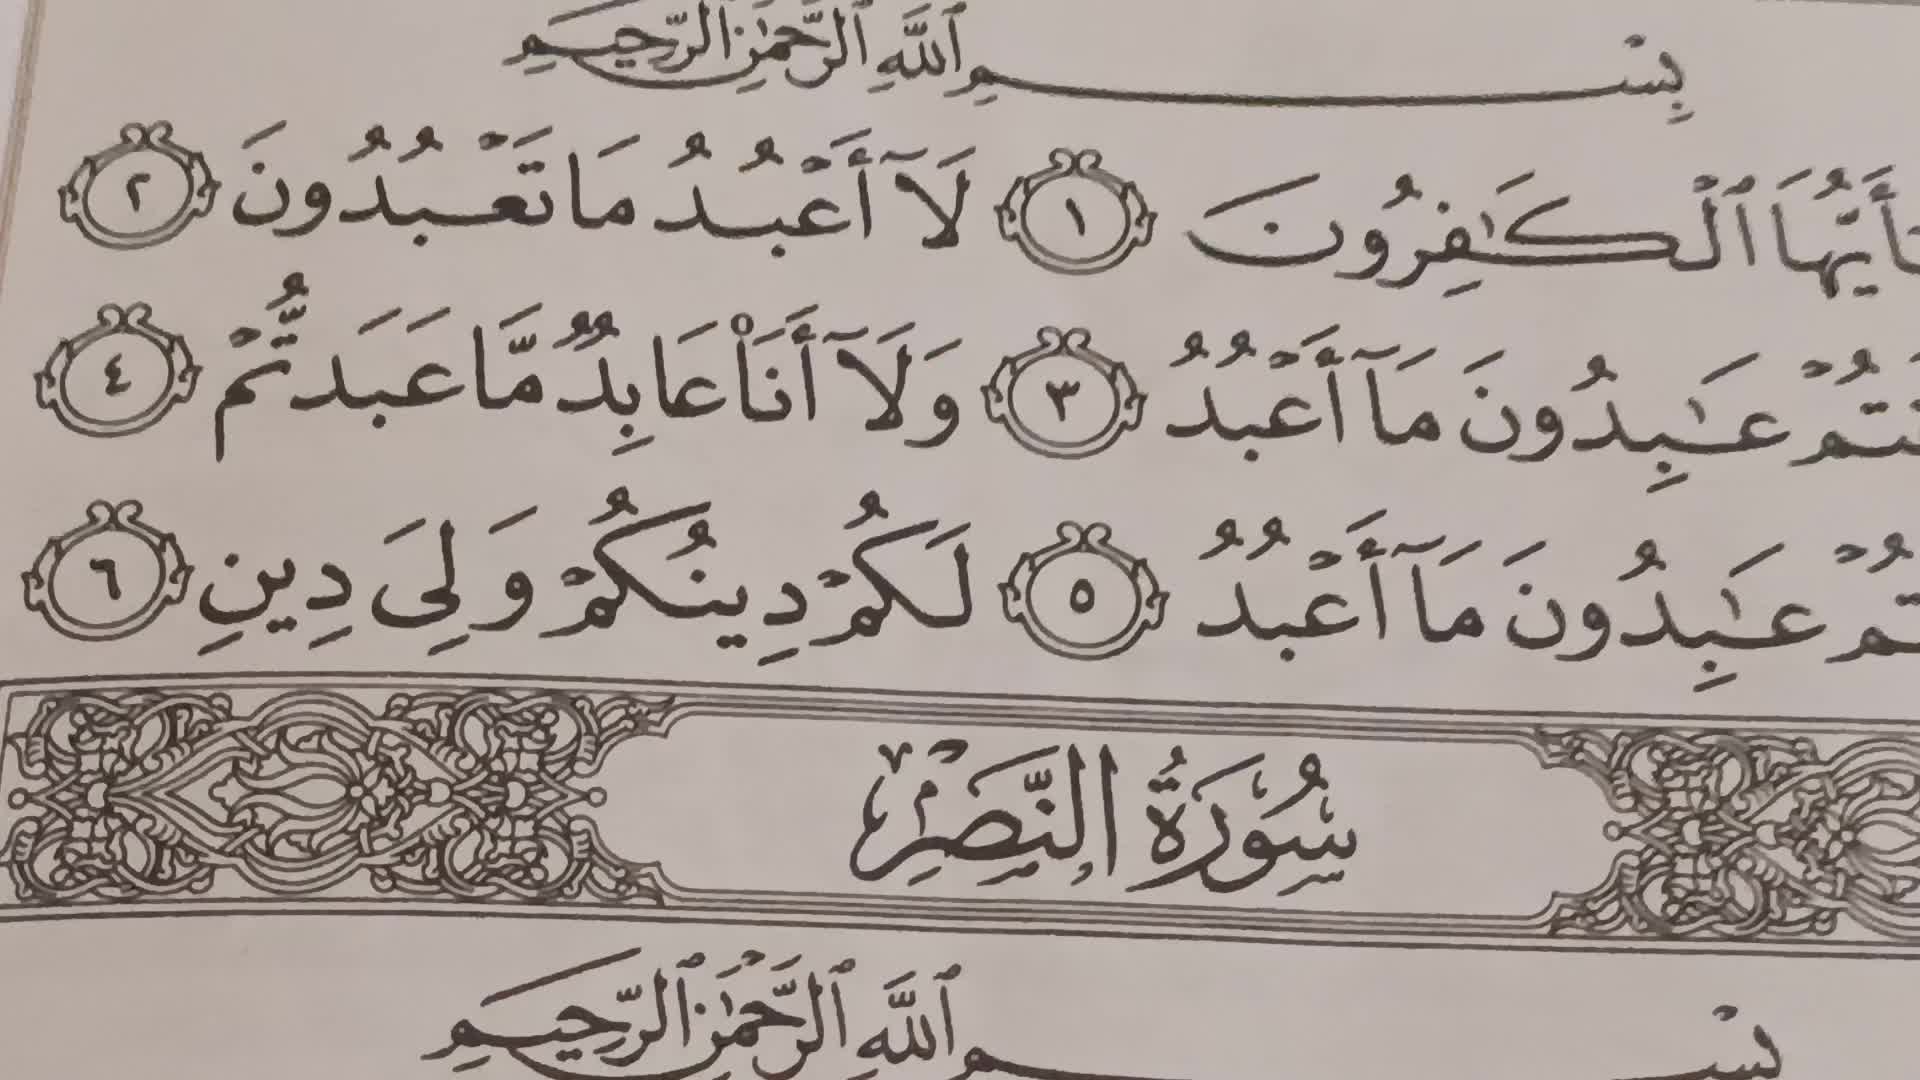 بِسْمِ ٱللَّهِ ٱلرَّحْمَٰنِ ٱلرَّحِيمِ
يَٰٓأَيُّهَا ٱلْكَٰفِرُونَ ١ لَآ أَعْبُدُ مَا تَعْبُدُونَ ٢
أَنتُمْ عَٰبِدُونَ مَآ أَعْبُدُ ٣ وَلَآ أَنَا۠ عَابِدٌ مَّا عَبَدتُّمْ ٤
أَنتُمْ عَٰبِدُونَ مَآ أَعْبُدُ ٥ لَكُمْ دِينُكُمْ وَلِىَ دِينِ ٦
سُورَةُ النَّصْرِ
بِسْمِ ٱللَّهِ ٱلرَّحْمَٰنِ ٱلرَّحِيمِ